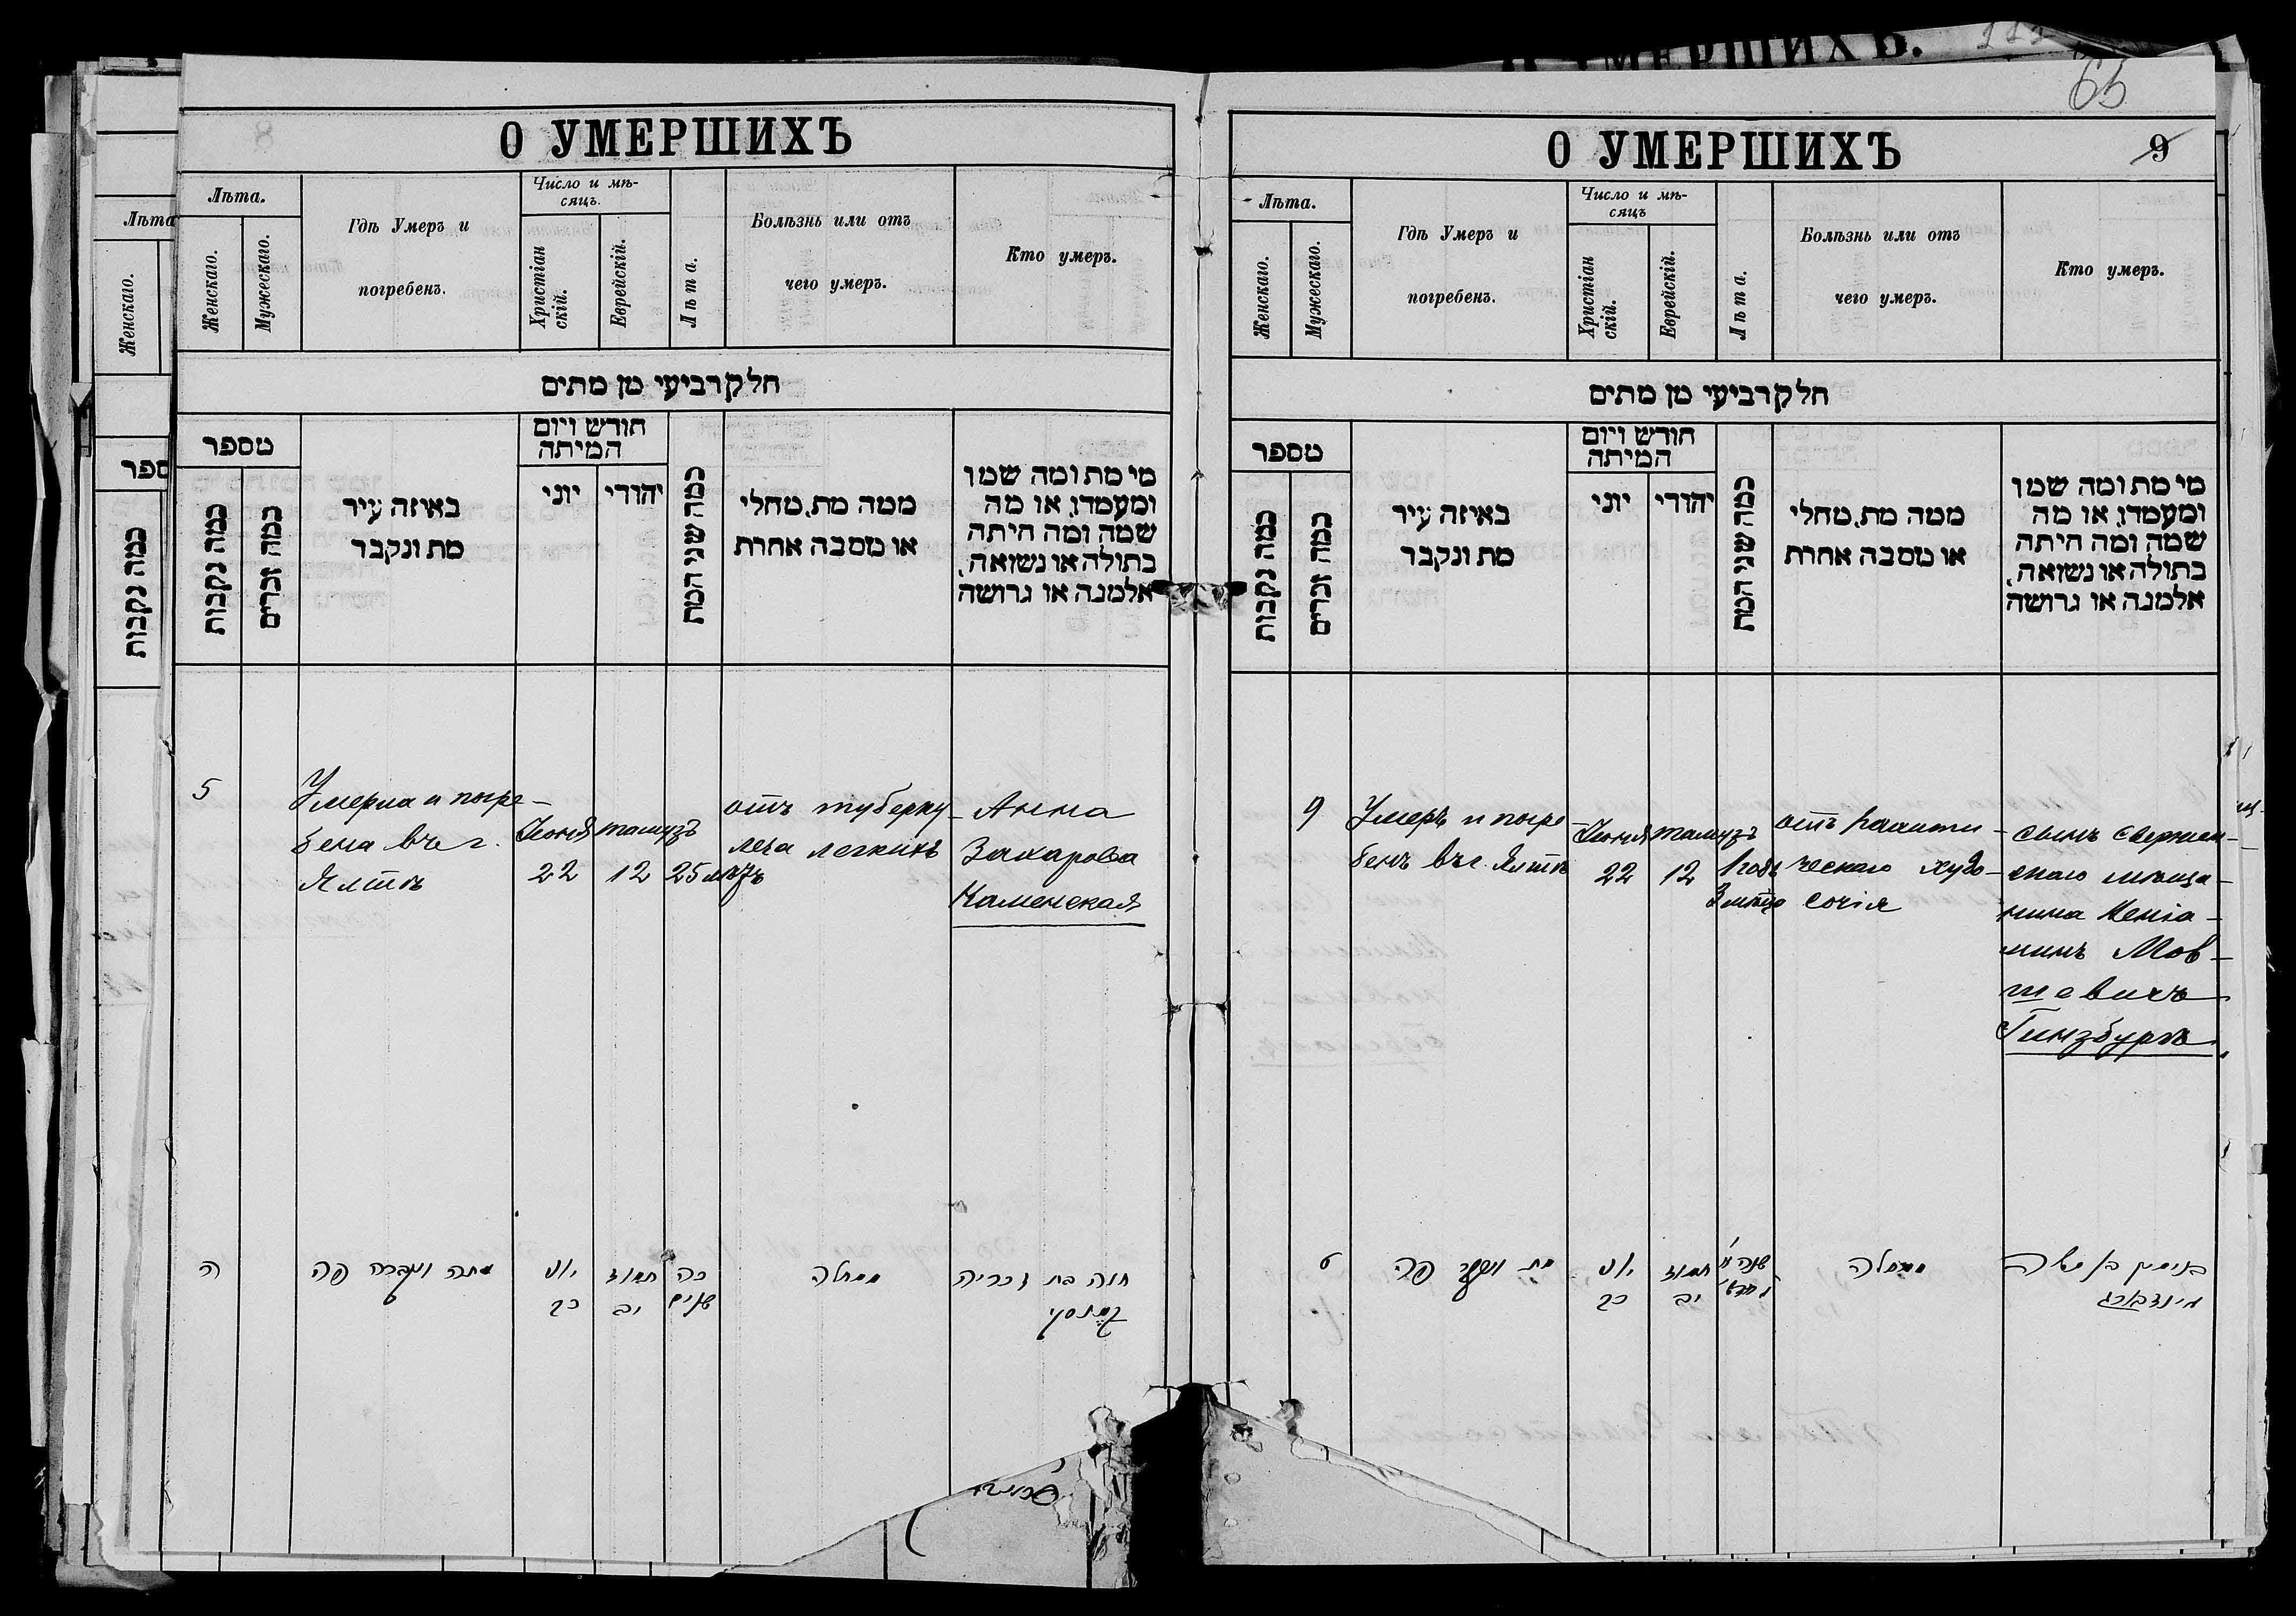 О УМЕРШИХЪ.
65
Лѣта
Женскаго.
כמה נקבות
О УМЕРШИХЪ
Лѣта.
Женскаго.
Мужескаго.
Гдѣ Умеръ и
погребенъ.
Число и мѣ-
сяцъ.
Христіан
скій.
Еврейскій.
Лѣта.
Болѣзнь или отъ
чего умеръ.
Кто умеръ.
חלק רביעי מן מתים
מספר
כמה נקבות
כמה זכרים
באיזה עיר
מת ונקבר
חודש ויום
המיתה
יוני
יהודי
כמה שני המת
ממה מת, מחלי
או מסבה אחרת
מי מת ומה שמו
ומעמדו, או מה
שמה ומה היתה
בתולה או נשואה,
אלמנה או גרושה
5
Умерла и погре-
бена въ г.
Ялтѣ
Іюня
22
тамузъ
12
25 лѣтъ
отъ туберку-
леза легкихъ
Анна
Захарова
Каменская
ה
מתה ונקברה פה
יוני
כב
תמוז
יב
כה
שנים
ממחלה
חוה בת זכריה
О УМЕРШИХЪ
9
Лѣта.
Женскаго.
Мужескаго.
Гдѣ Умеръ и
погребенъ.
Число и мѣ-
сяцъ
Христіан
скій.
Еврейскій.
Лѣта.
Болѣзнь или отъ
чего умеръ.
Кто умеръ.
חלק רביעי מן מתים
מספר
כמה נקבות
כמה זכרים
באיזה עיר
מת ונקבר
חודש ויום
המיתה
יוני
יהודי
כמה שני המת
ממה מת, מחלי
או מסבה אחרת
מי מת ומה שמו
ומעמדו, או מה
שמה ומה היתה
בתולה או נשואה,
אלמנה או גרושה
9
Умеръ и погре-
бенъ въ г. Ялтѣ
Іюня
22
тамузъ
12
1 годъ
3 мѣсяца
отъ рахити-
ческаго худо-
сочія
сынъ
скаго мѣща-
нина Веніа-
минъ Мов-
шевичъ
Гинзбургъ.
ט
מת ונקבר פה
יוני
כב
תמוז
יב
ממחלה
בנימין בן משה
גינזבורג